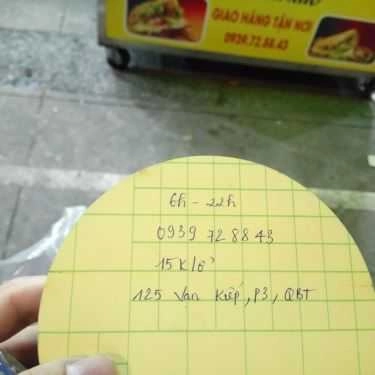 GIAO HÀNG TẬN NƠI
0939.72.88.43
6h - 22h
0939 72 88 43
15K/ổ
125 Vạn Kiếp, P3, QBT